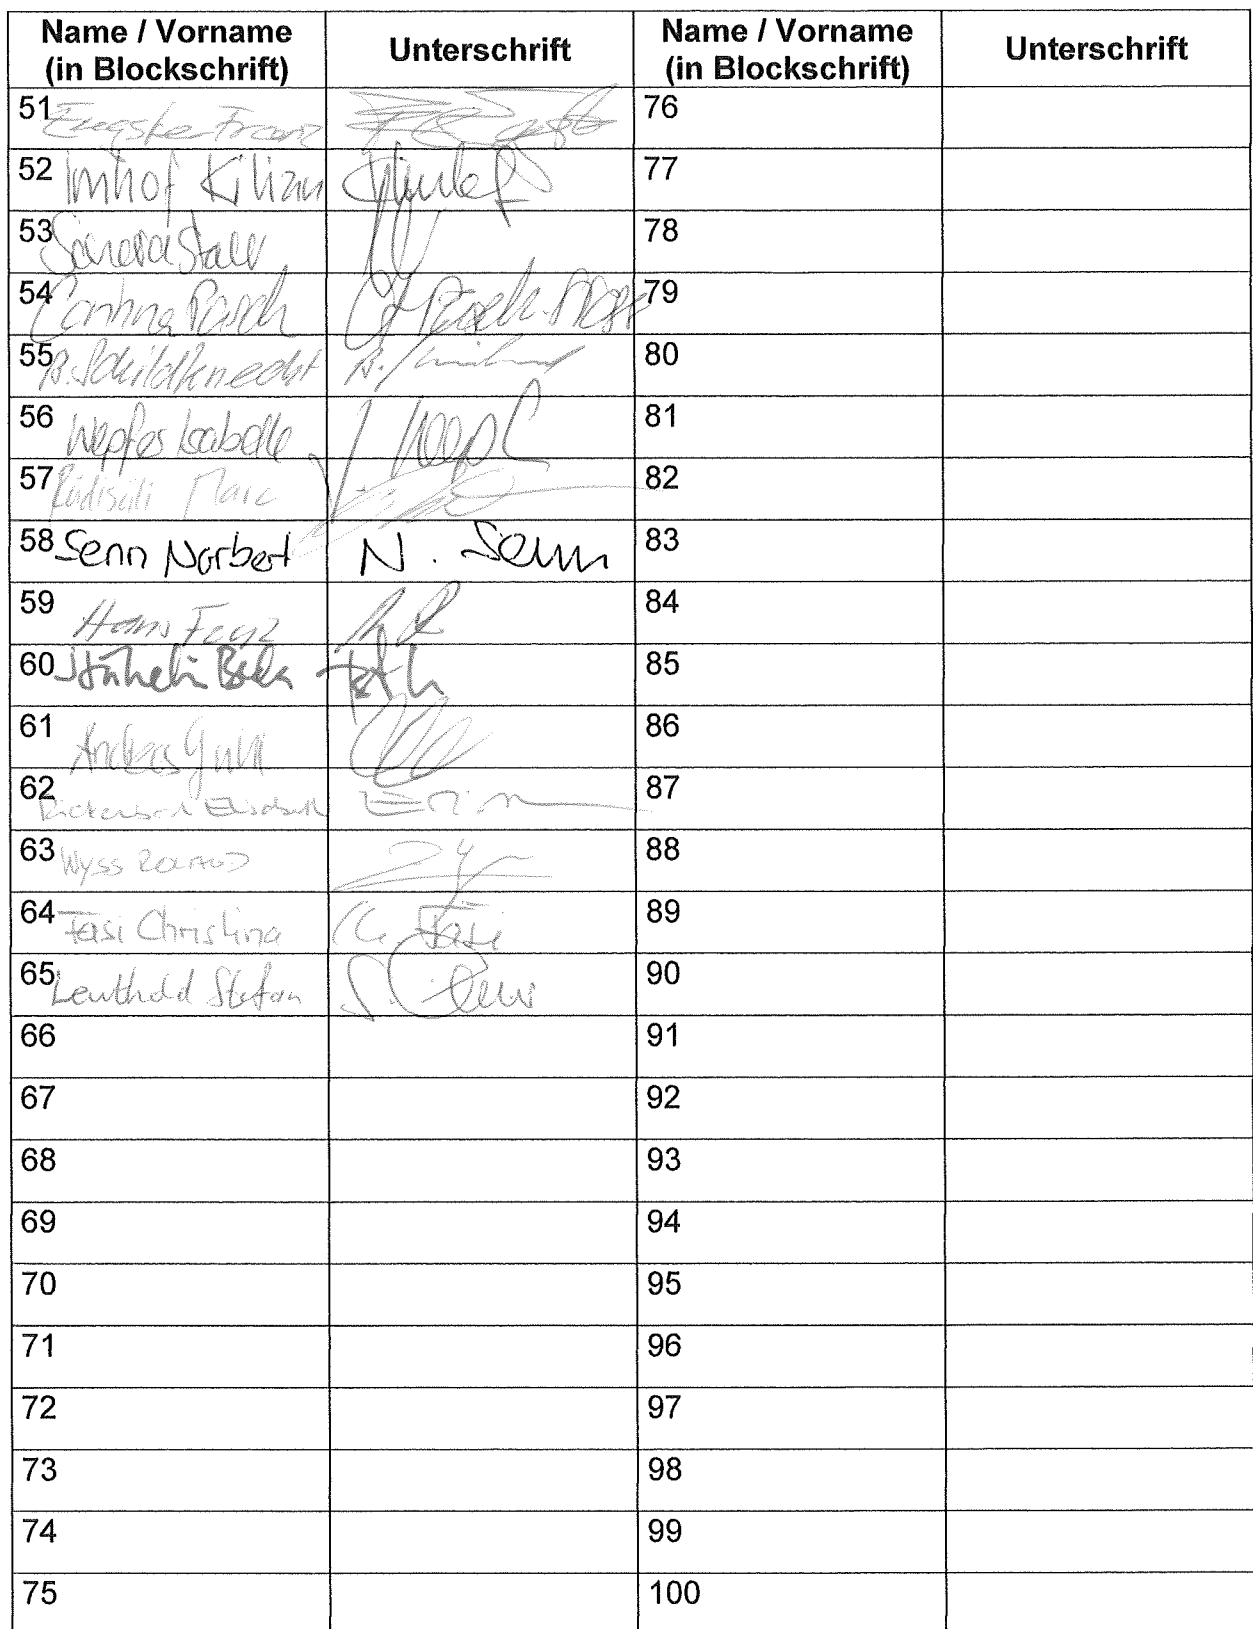 Name / Vorname (in Blockschrift) Unterschrift Name / Vorname (in Blockschrift) Unterschrift
51 Eugster Franz 76
52 Imhof Kilian 77
53 78
54 Corinna Pasch 79
55 B. Schildknecht 80
56 Wepfer Isabelle 81
57 Rüdisüli Marc 82
58 Senn Norbert N. Senn 83
59 84
60 Stähelin 85
61 Andreas Guhl 86
62 Rickenbach Elisabeth 87
63 Wyss Roland 88
64 Fäsi Christina C. Fäsi 89
65 Leuthold Stefan 90
66 91
67 92
68 93
69 94
70 95
71 96
72 97
73 98
74 99
75 100